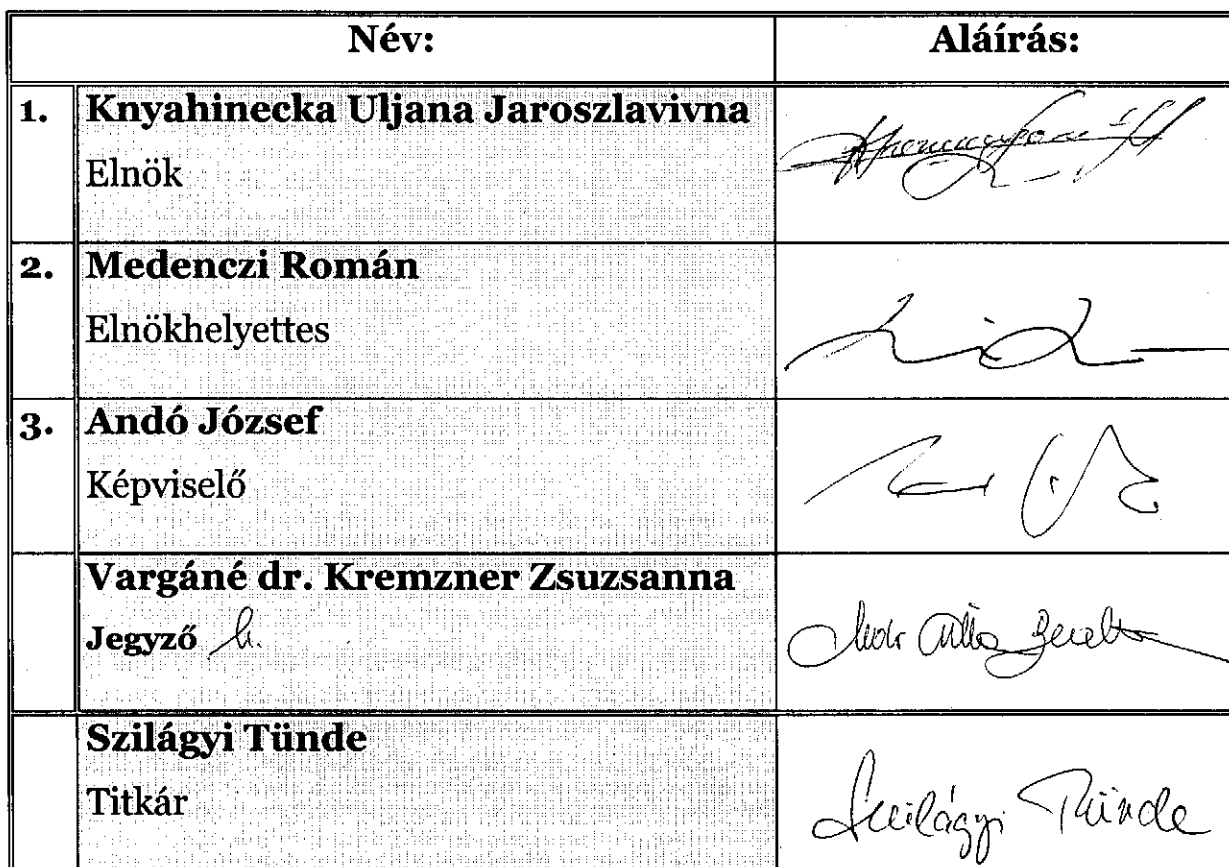 Név: Aláírás:
1. Knyahinecka Uljana Jaroszlavivna
Elnök
2. Medenczi Román
Elnökhelyettes
3. Andó József
Képviselő
Vargáné dr. Kremzner Zsuzsanna
Jegyző h.
Szilágyi Tünde
Titkár Szilágyi Tünde